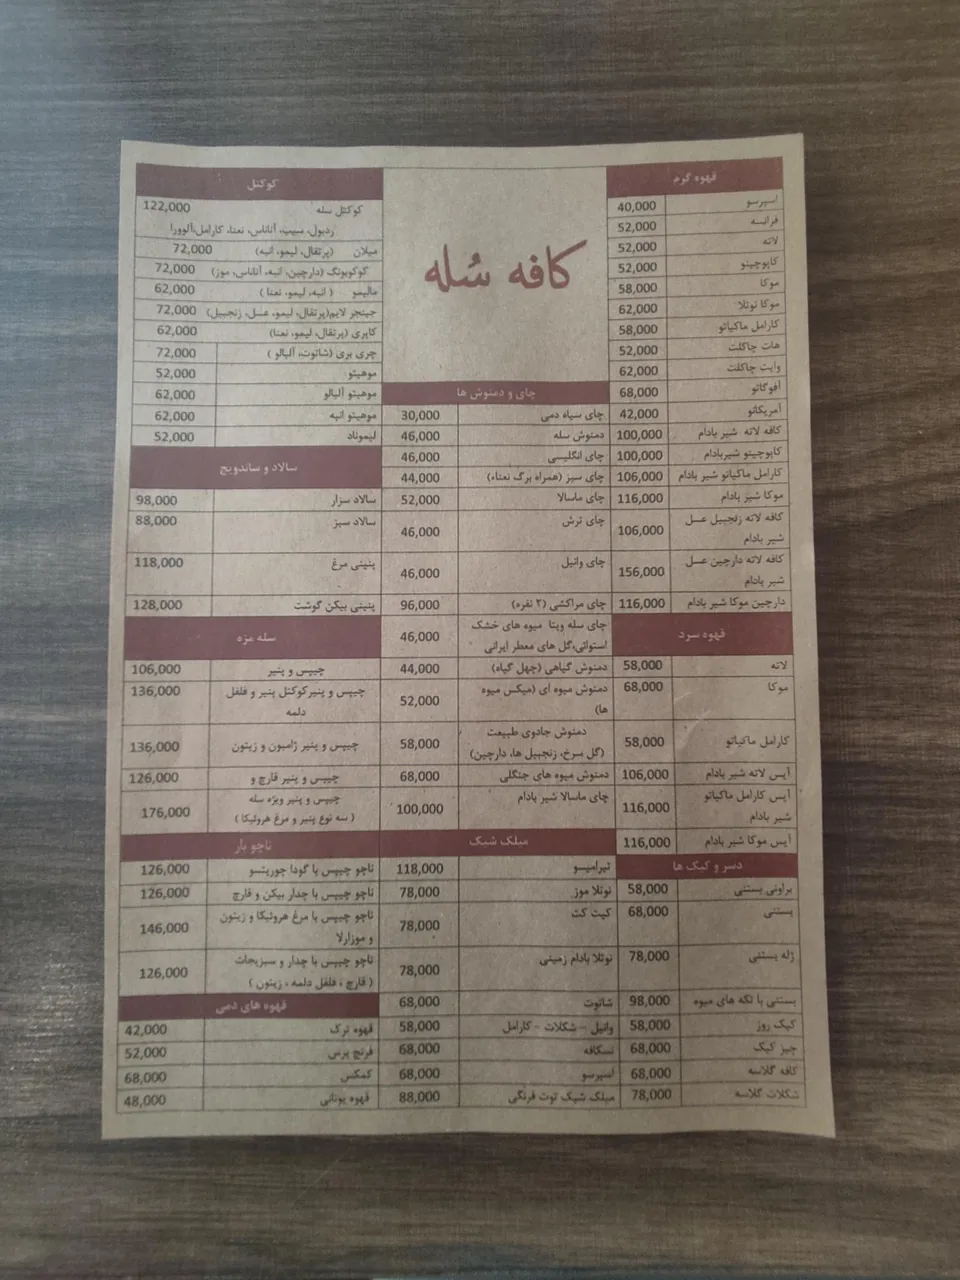 کافه سُله
قهوه گرم
اسپرسو 40,000
فرانسه 52,000
لاته 52,000
کاپوچینو 52,000
موکا 58,000
موکا نوتلا 62,000
کارامل ماکیاتو 58,000
هات چاکلت 52,000
وایت چاکلت 62,000
آفوگاتو 68,000
آمریکانو 42,000
کافه لاته شیر بادام 100,000
کاپوچینو شیربادام 100,000
کارامل ماکیاتو شیر بادام 106,000
موکا شیر بادام 116,000
کافه لاته زنجبیل عسل 106,000
شیر بادام
کافه لاته دارچین عسل 156,000
شیر بادام
دارچین موکا شیر بادام 116,000
قهوه سرد
لاته 58,000
موکا 68,000
کارامل ماکیاتو 58,000
آیس لاته شیر بادام 106,000
آیس کارامل ماکیاتو 116,000
شیر بادام
آیس موکا شیر بادام 116,000
دسر و کیک ها
براونی بستنی 58,000
بستنی 68,000
ژله بستنی 78,000
بستنی با تکه های میوه 98,000
کیک روز 58,000
چیز کیک 68,000
کافه گلاسه 68,000
شکلات گلاسه 78,000
چای و دمنوش ها
چای سیاه دمی 30,000
دمنوش سله 46,000
چای انگلیسی 46,000
چای سبز (همراه برگ نعناء) 44,000
چای ماسالا 52,000
چای ترش 46,000
چای وانیل 46,000
چای مراکشی (۲ نفره) 96,000
چای سله ویتا میوه های خشک 46,000
استوائی،گل های معطر ایرانی
دمنوش گیاهی (چهل گیاه) 44,000
دمنوش میوه ای (میکس میوه 52,000
ها)
دمنوش جادوی طبیعت 58,000
(گل سرخ، زنجبیل ها، دارچین)
دمنوش میوه های جنگلی 68,000
چای ماسالا شیر بادام 100,000
میلک شیک
تیرامیسو 118,000
نوتلا موز 78,000
کیت کت 78,000
نوتلا بادام زمینی 78,000
شاتوت 68,000
وانیل - شکلات - کارامل 58,000
نسکافه 68,000
اسپرسو 68,000
میلک شیک توت فرنگی 88,000
کوکتل
کوکتل سله 122,000
ردبول، سیب، آناناس، نعنا، کارامل،آلوورا
میلان (پرتقال، لیمو، انبه) 72,000
کوکوبونگ (دارچین، انبه، آناناس، موز) 72,000
مالیمو (انبه، لیمو، نعنا) 62,000
جینجر لایم(پرتقال، لیمو، عسل، زنجبیل) 72,000
کاپری (پرتقال، لیمو، نعنا) 62,000
چری بری (شاتوت، آلبالو) 72,000
موهیتو 52,000
موهیتو آلبالو 62,000
موهیتو انبه 62,000
لیموناد 52,000
سالاد و ساندویچ
سالاد سزار 98,000
سالاد سبز 88,000
پنینی مرغ 118,000
پنینی بیکن گوشت 128,000
سله مزه
چیپس و پنیر 106,000
چیپس و پنیرکوکتل پنیر و فلفل 136,000
دلمه
چیپس و پنیر ژامبون و زیتون 136,000
چیپس و پنیر قارچ و 126,000
چیپس و پنیر ویژه سله 176,000
( سه نوع پنیر و مرغ هروئیکا )
ناچو بار
ناچو چیپس با گودا چوریتسو 126,000
ناچو چیپس با چدار بیکن و قارچ 126,000
ناچو چیپس با مرغ هروئیکا و زیتون 146,000
و موزارلا
ناچو چیپس با چدار و سبزیجات 126,000
( قارچ ، فلفل دلمه ، زیتون )
قهوه های دمی
قهوه ترک 42,000
فرنچ پرس 52,000
کمکس 68,000
قهوه یونانی 48,000